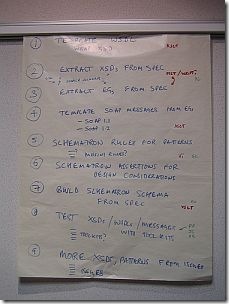 ① TEMPLATE WSDL
WHAT XSD?
XSLT
② EXTRACT XSDs FROM SPEC
XSLT /
③ EXTRACT EGs FROM SPEC
④ TEMPLATE SOAP MESSAGES FROM EGs
- SOAP 1.1
- SOAP 1.2
XSLT
⑤ SCHEMATRON RULES FOR PATTERNS
⑥ SCHEMATRON ASSERTIONS FOR
DESIGN CONSIDERATIONS
⑦ BUILD SCHEMATRON SCHEMA
FROM SPEC
XSLT
⑧ TEST XSDs/WSDLs/MESSAGES
WITH TOOLKITS
TOOLKITS?
⑨ MORE XSDs/PATTERNS FROM ISSUES
ISSUES